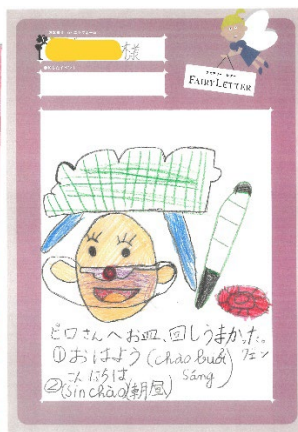 様
FAIRY LETTER
ピロさんへ お皿、回しうまかった。
① おはよう (chào buổi sáng) フェン
こんにちは
② (Sin chào) (朝昼)